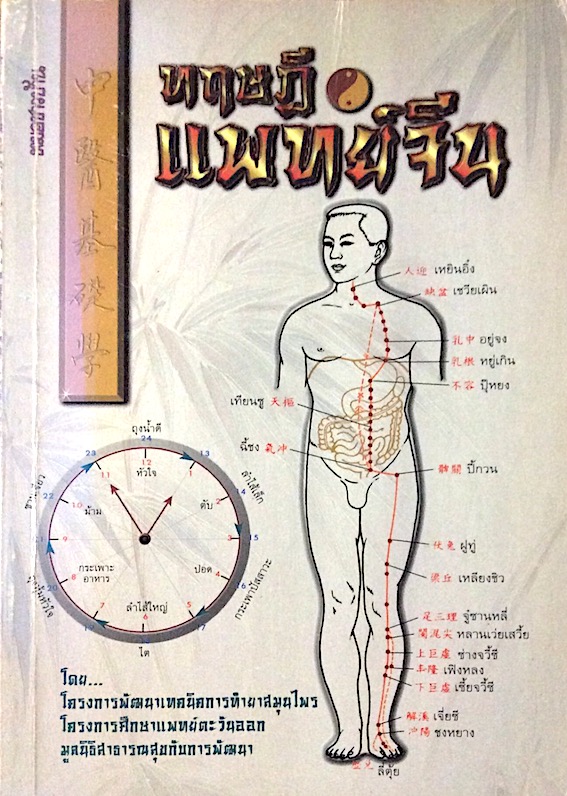 中醫基礎學
ทฤษฎี
แพทย์จีน
人迎 เหยินอิ๋ง
缺盆 เชวียเผิน
乳中 อยู่จง
乳根 หยู่เกิน
不容 ปู้หยง
เทียนซู 天樞
ฉี้ชง 氣冲
髀關 ปี้กวน
伏兔 ฝูทู่
梁丘 เหลียงชิว
足三理 จู๋ซานหลี่
闌尾尖 หลานเว่ยเสวี้ย
上巨虛 ช่างจวี้ซี
丰隆 เฟิงหลง
下巨虛 เซี้ยจวี้ซี
解溪 เจี่ยซี
冲陽 ชงหยาง
ลี่ตุ้ย
ถุงน้ำดี
24
23
13
12
หัวใจ
11
1
ลำไส้เล็ก
22
14
10
ม้าม
ตับ
2
9
3
15
กระเพาะ
อาหาร
ปอด
8
4
16
กระเพาะปัสสาวะ
7
ลำไส้ใหญ่
5
6
17
ไต
โดย...
โครงการพัฒนาเทคนิคการทำยาสมุนไพร
โครงการศึกษาแพทย์ตะวันออก
มูลนิธิสาธารณสุขกับการพัฒนา